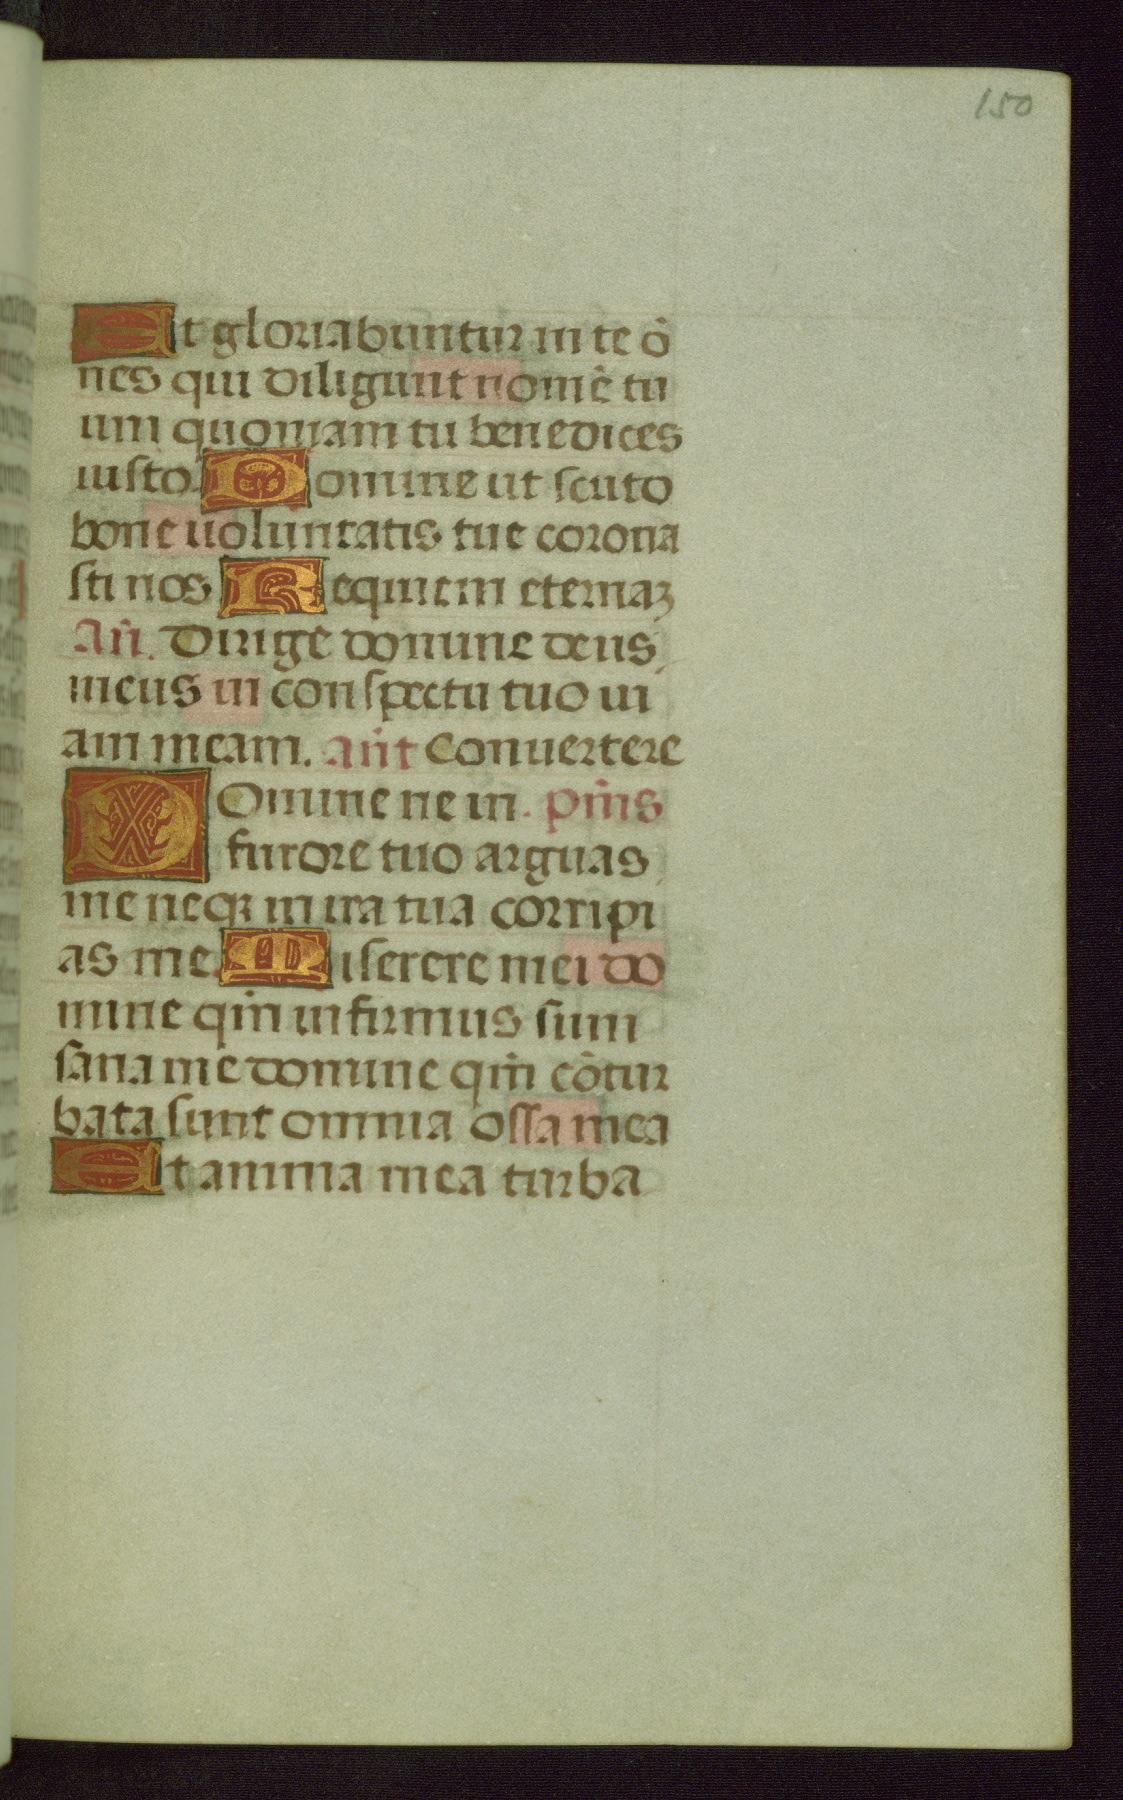 150
Et gloriabuntur in te ō
nes qui diligunt nomē tu
um quoniam tu benedices
iusto. Domine ut scuto
bone uoluntatis tue corona
sti nos Requiem eternaꝫ
Añ. Dirige domine deus
meus in conspectu tuo ui
am meam. añt Conuertere
Domine ne in. pm̄s
furore tuo arguas
me neqꝫ in ira tua corripi
as me. Miserere mei do
mine qm̄ infirmus sum
sana me domine qm̄ cōtur
bata sunt omnia ossa mea
Et anima mea turba